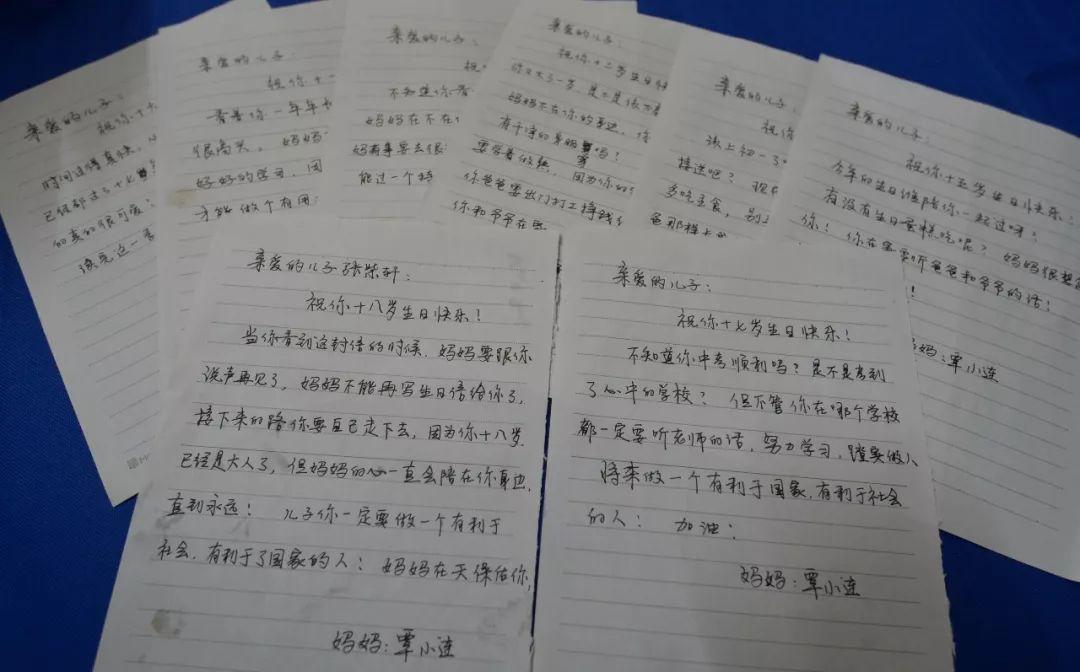 亲爱的儿子:
祝你十
时间过得真快,
已经都过了十七
的真的很可爱!
读完这一
亲爱的儿子:
祝你十一
看着你一年年
很高兴,妈妈
好好的学习,
才能做个有用
亲爱的儿子:
祝
不知道你看
妈妈在不在
妈有事要去很
能过一个特
亲爱的儿子:
祝你十二岁生日快
你又大了一岁,是不是很
妈妈不在你的身边,你
有干净的穿吗?
要学着做熟,因为你的
你爸爸要出门打工挣钱
你和爷爷在家
亲爱的儿子:
祝你
该上初一了
接送吧?现
多吃主食,别
爸那样
亲爱的儿子:
祝你十五岁生日快乐!
今年的生日谁陪你一起过呀?
有没有生日蛋糕吃呢?妈妈很想
你!你在家要听爸爸和爷爷的话!
妈:覃小连
亲爱的儿子张荣轩:
祝你十八岁生日快乐!
当你看到这封信的时候,妈妈要跟你
说声再见了,妈妈不能再写生日信给你了,
接下来的路你要自己走下去,因为你十八岁
已经是大人了,但妈妈的心一直会陪在你身边,
直到永远!儿子你一定要做一个有利于
社会,有利于了国家的人!妈妈在天保佑你,
妈妈:覃小连
亲爱的儿子:
祝你十七岁生日快乐!
不知道你中考顺利吗?是不是考到
了心中的学校?但不管你在哪个学校
都一定要听老师的话,努力学习,
将来做一个有利于国家,有利于社会
的人!加油!
妈妈:覃小连